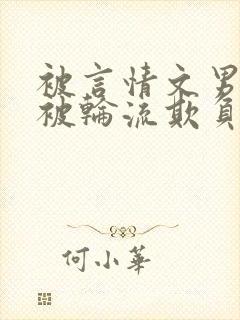 被言情文男
被輪流欺負
何小華